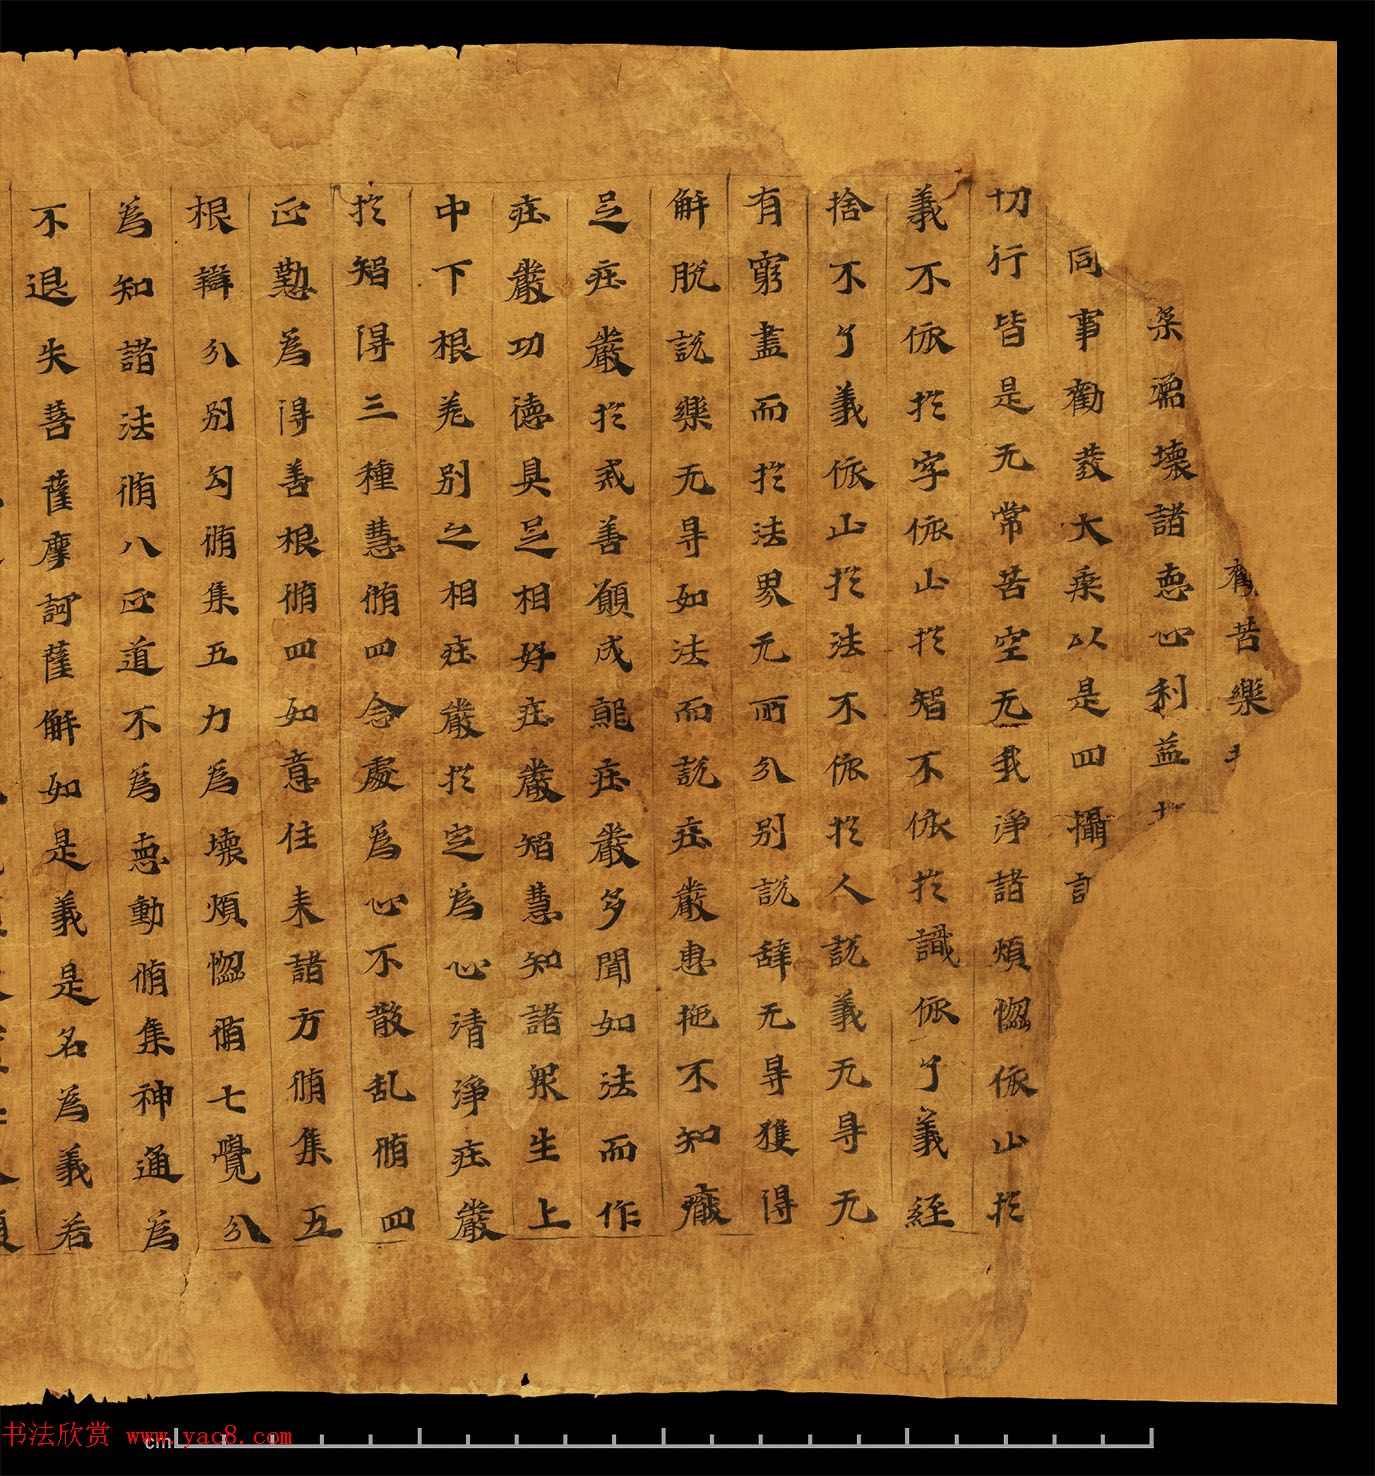 苦樂
柔濡壞諸恚心利益
同事勸發大乘以是四攝
切行皆是无常苦空无我淨諸煩惱依止於
義不依於字依止於智不依於識依了義經
捨不了義依止於法不依於人說義无㝵无
有窮盡而於法界无所分別說辞无㝵獲得
解脫說樂无㝵如法而說疰嚴惠施不知
足疰嚴於戒善願成就疰嚴多聞如法而作
疰嚴功德具足相好疰嚴智慧知諸眾生上
中下根差別之相疰嚴於定為心清淨疰嚴
於智得三種慧脩四念處為心不散乱脩四
正懃為得善根脩四如意住来諸方脩集五
根辯分別勾脩集五力為壞煩惱脩七覺分
為知諸法脩八正道不為恚動脩集神通為
不退失菩薩摩訶薩解如是義是名為義若
书法欣赏 www.yac8.com
cm